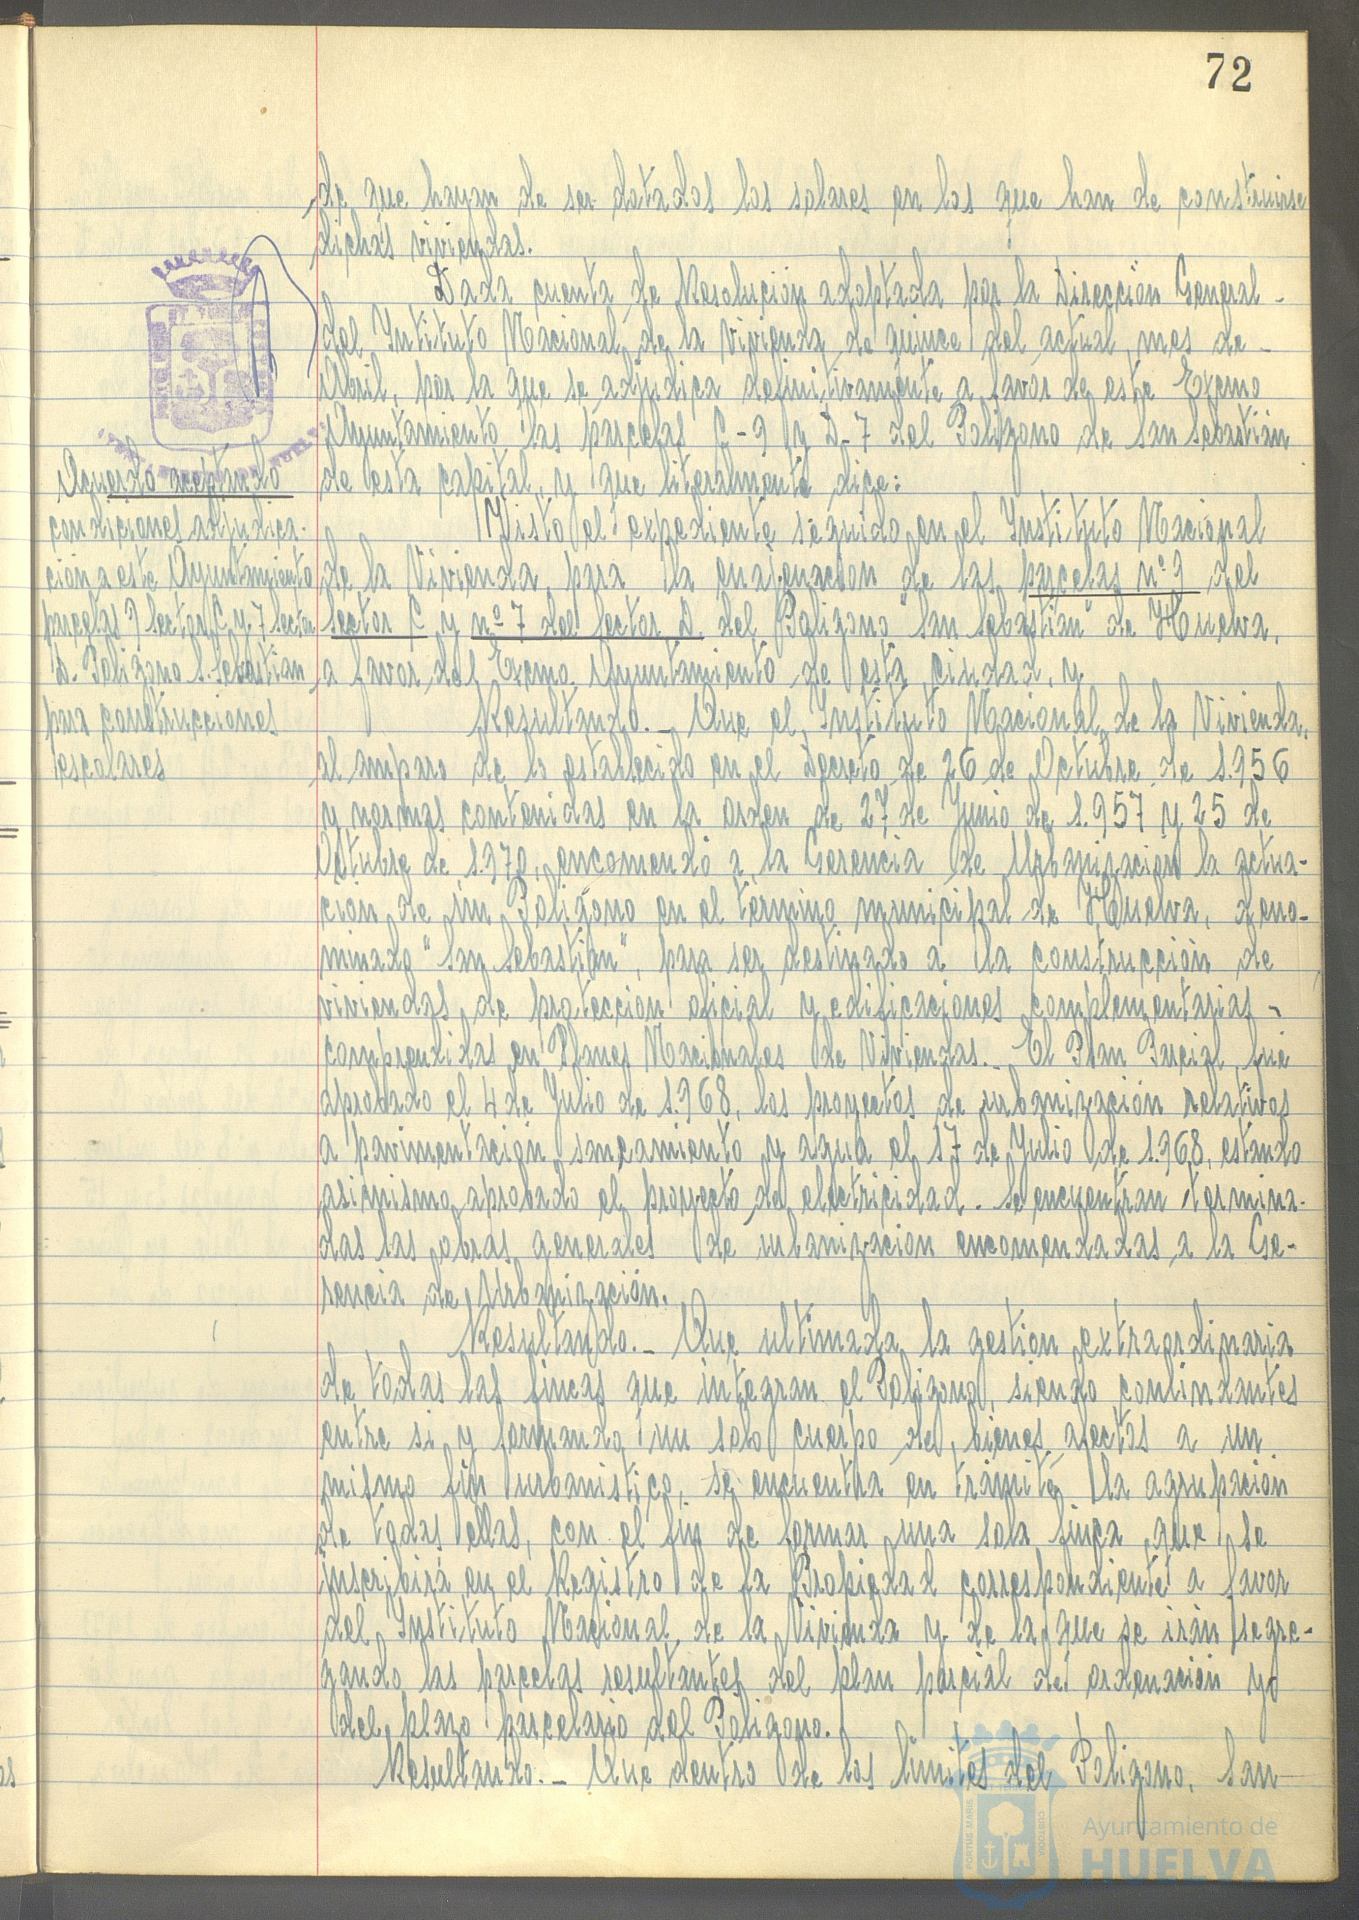 72
de que hayan de ser dotados los solares en los que han de construirse
dichas viviendas.
Dada cuenta de Resolución adoptada por la Dirección General -
del Intituto Nacional de la Vivienda de quince del actual, mes de -
Abril, por la que se adjudica definitivamente a favor de este Excmo
Ayuntamiento las parcelas C-9 y D-7 del Poligono de San Sebastián
de esta capital, y que literalmente dice:
Acuerdo aceptando
condiciones adjudica-
ción a este Ayuntamiento
parcelas 9 Sector C y 7 sector
D. Poligono S. Sebastian
para construcciones
escolares
Visto el expediente seguido en el Instituto Nacional
de la Vivienda, para la enajenación de las parcelas nº 9 del
Sector C y nº 7 del Sector D. del Poligono "San Sebastián" de Huelva,
a favor del Excmo. Ayuntamiento de esta ciudad, y
Resultando.- Que el Instituto Nacional de la Vivienda,
al amparo de lo establecido en el Decreto de 26 de Octubre de 1.956
y normas contenidas en la orden de 27 de Junio de 1.957 y 25 de
Octubre de 1.970, encomendó a la Gerencia de Urbanización la actua-
ción de un Poligono en el término municipal de Huelva, deno-
minado "San Sebastián", para ser destinado a la construcción de
viviendas de protección oficial y edificaciones complementarias -
comprendidas en Planes Nacionales de Viviendas.- El Plan Parcial, fué
aprobado el 4 de Julio de 1.968, los proyectos de urbanización relativos
a pavimentación, saneamiento y agua el 17 de Julio de 1.968, estando
asimismo aprobado el proyecto de electricidad. Se encuentran termina-
das las obras generales de urbanización encomendadas a la Ge-
rencia de Urbanización.
Resultando.- Que ultimada la gestión extraordinaria
de todas las fincas que integran el Poligono, siendo colindantes
entre si y formando un solo cuerpo de bienes afectos a un
mismo fin urbanistico, se encuentra en trámite la agrupación
de todas ellas, con el fin de formar una sola finca que se
inscribirá en el Registro de la Propiedad correspondiente a favor
del Instituto Nacional de la Vivienda y de la que se irán segre-
gando las parcelas resultantes del plan parcial de ordenación y
del plazo parcelario del Poligono.
Resultando.- Que dentro de los limites del Poligono, San
PORTUS MARIS
CUSTODIA
Ayuntamiento de
HUELVA